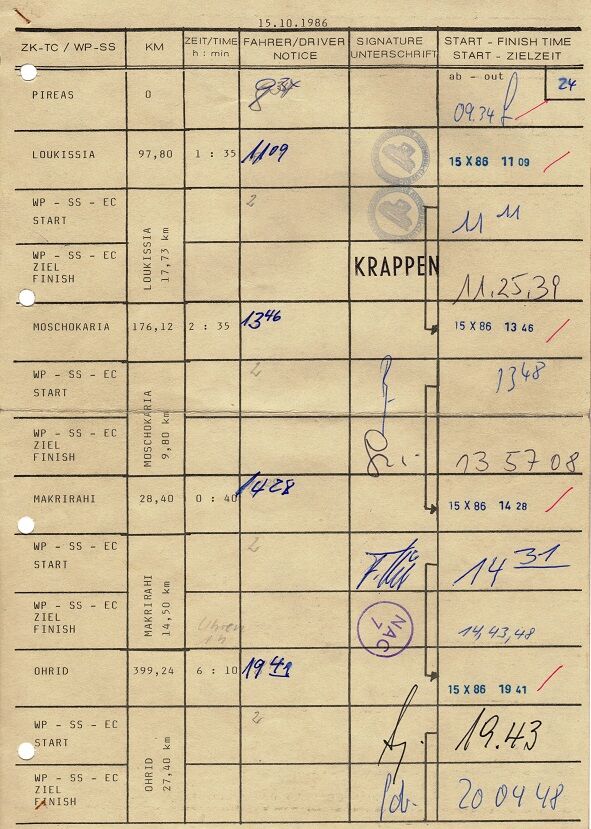 15.10.1986
ZK-TC / WP-SS KM ZEIT/TIME FAHRER/DRIVER SIGNATURE START - FINISH TIME
h : min NOTICE UNTERSCHRIFT START - ZIELZEIT
ab - out 24
PIREAS 0
09.34
LOUKISSIA 97,80 1 : 35 11 09 15 X 86 11 09
WP - SS - EC 2
START 11 11
LOUKISSIA
17,73 km
WP - SS - EC
ZIEL KRAPPEN
FINISH 11,25,39
MOSCHOKARIA 176,12 2 : 35 13 46 15 X 86 13 46
WP - SS - EC 2 1348
START
MOSCHOKARIA
9,80 km
WP - SS - EC
ZIEL
FINISH 13 57 08
MAKRIRAHI 28,40 0 : 40 14 28 15 X 86 14 28
WP - SS - EC 2
START 14 31
MAKRIRAHI
14,50 km
WP - SS - EC
ZIEL Uhren NAC
FINISH 1h 7 14,43,48
OHRID 399,24 6 : 10 19 41 15 X 86 19 41
WP - SS - EC 2
START 19.43
OHRID
27,40 km
WP - SS - EC
ZIEL
FINISH 20 04 48